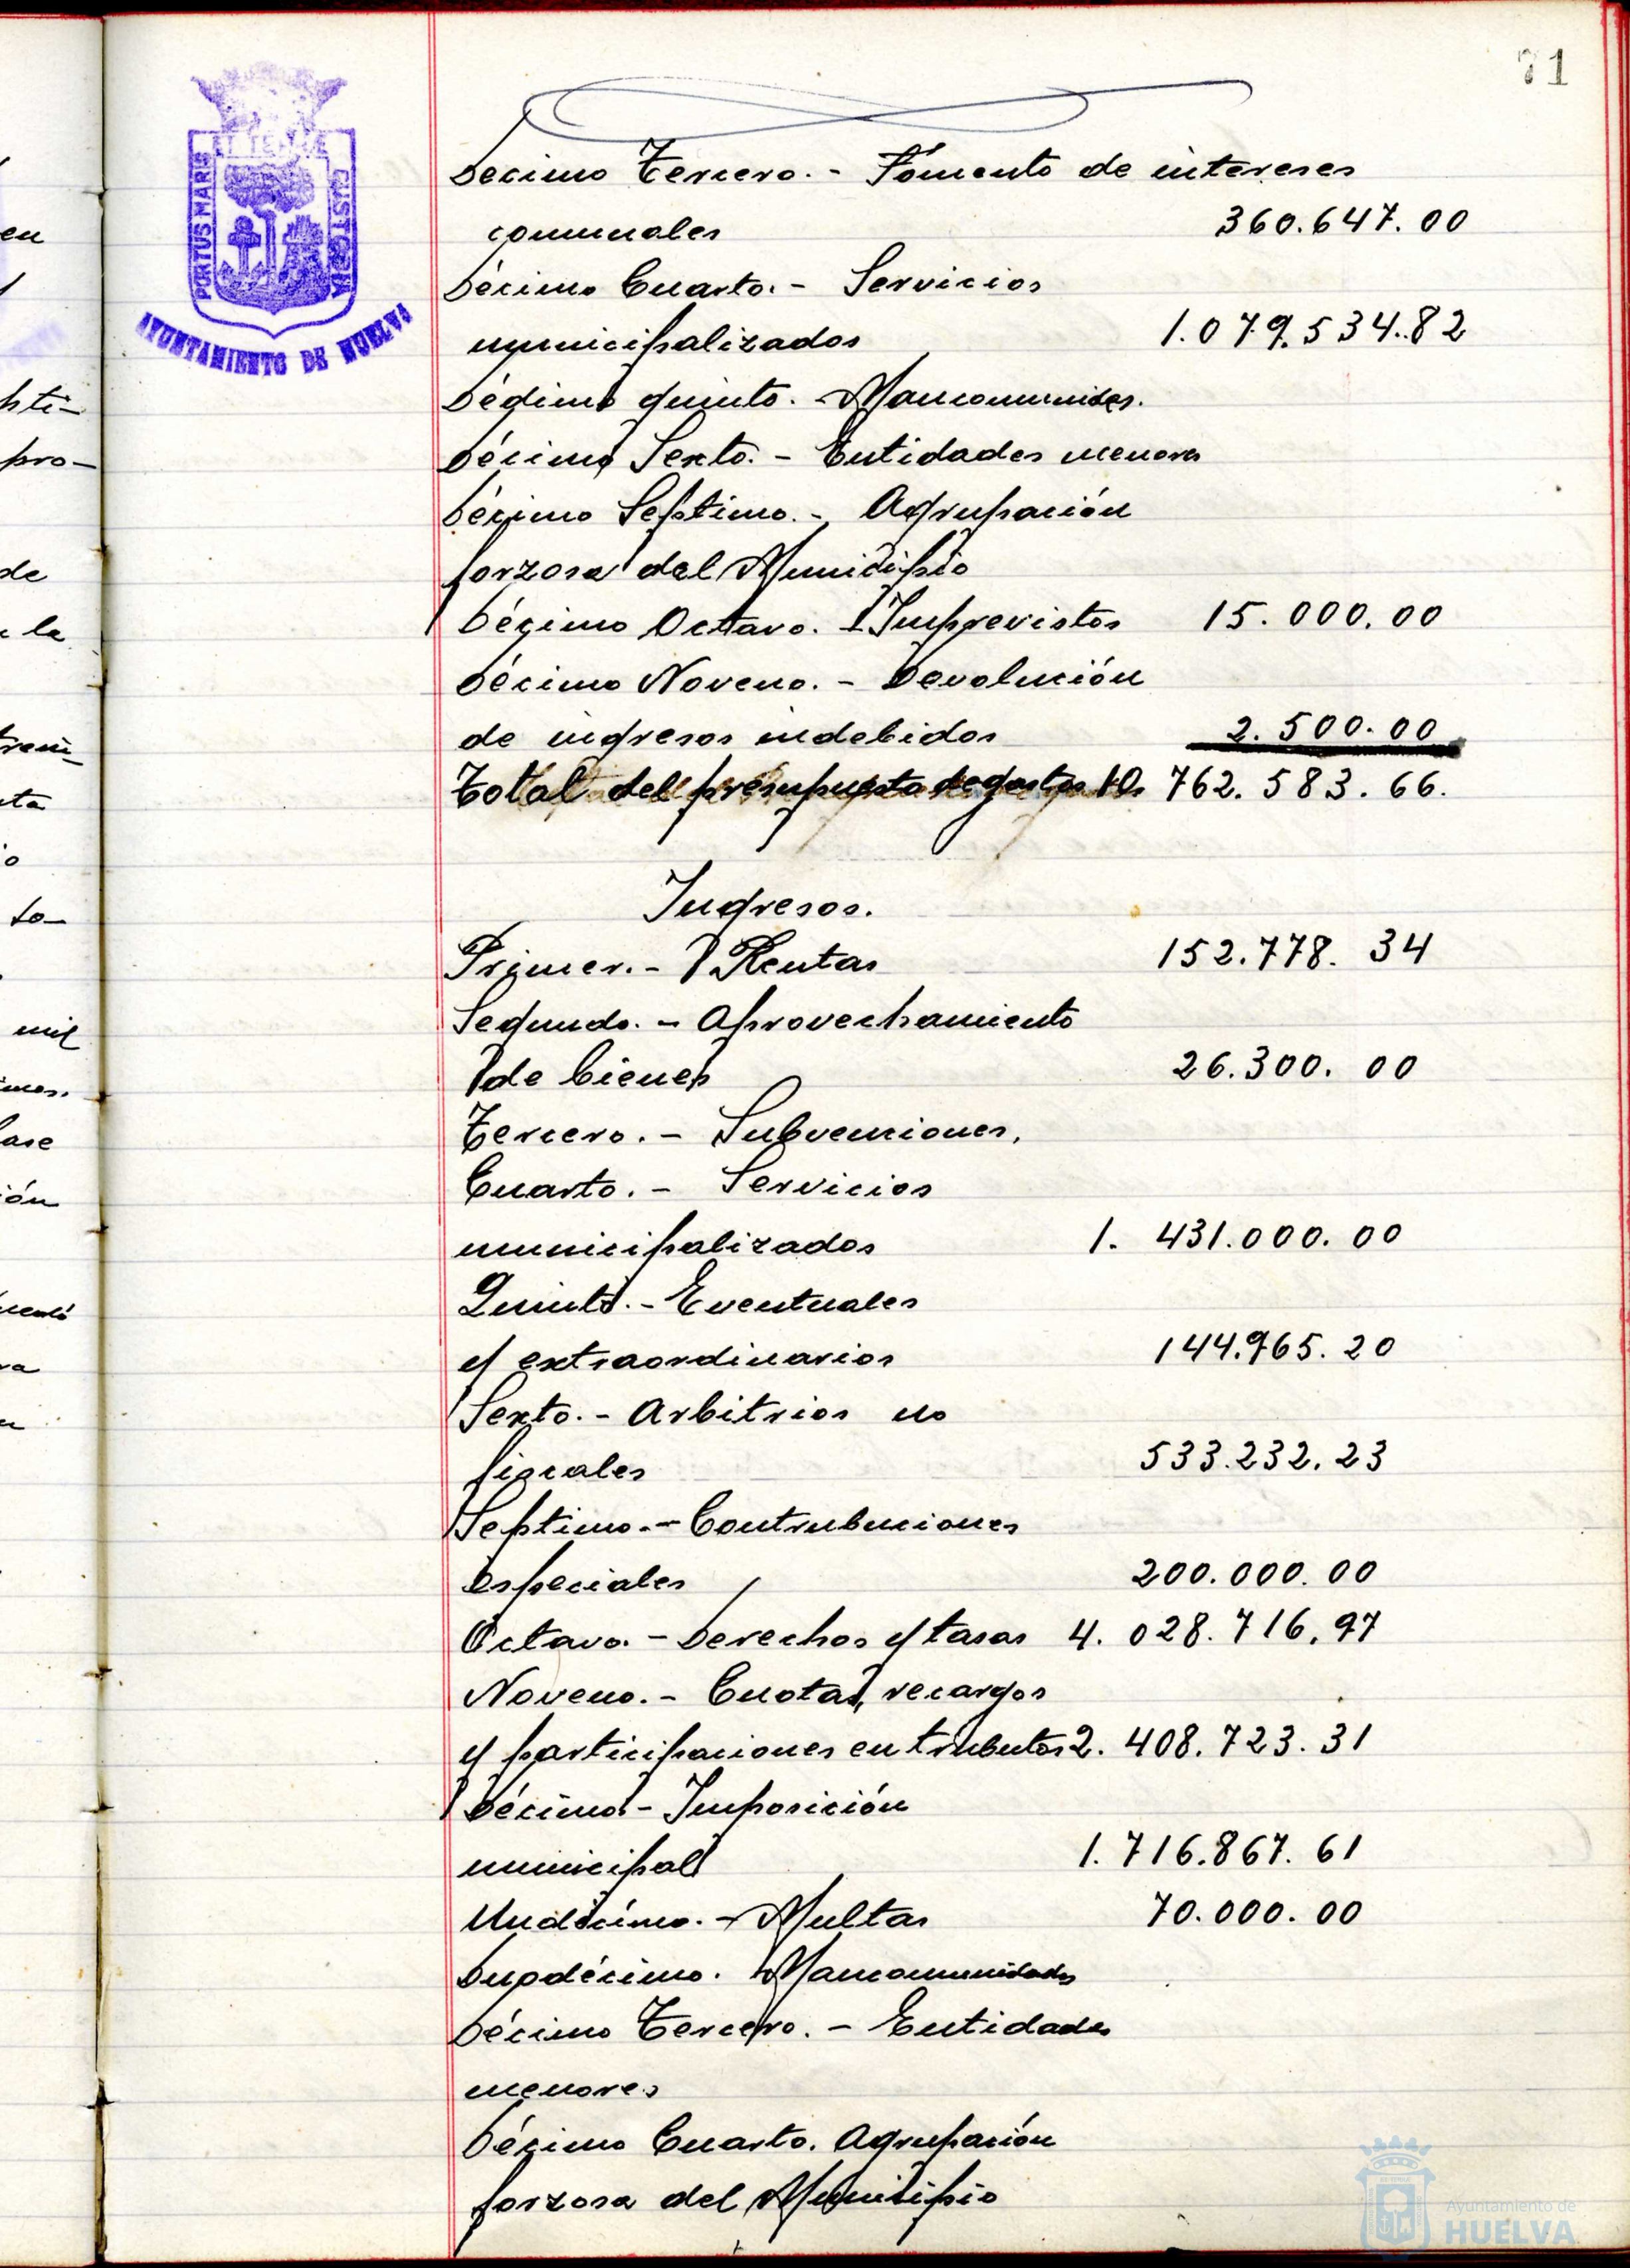 71
ET TERRE
PORTUS MARIS
CUSTODIA
AYUNTAMIENTO DE HUELVA
Decimo Tercero. - Fomento de intereses
comunales 360.647.00
Décimo Cuarto. - Servicios
municipalizados 1.079.534.82
Décimo quinto. - Mancomunides.
Décimo Sexto. - Entidades menores
Décimo Septimo. - Agrupación
forzosa del Municipio
Décimo Octavo. - Imprevistos 15.000.00
Décimo Noveno. - Devolución
de ingresos indebidos 2.500.00
Total del presupuesto de gastos 10. 762.583.66.
Ingresos.
Primer. - Rentas 152.778.34
Segundo. - Aprovechamiento
de bienes 26.300.00
Tercero. - Subvenciones,
Cuarto. - Servicios
municipalizados 1. 431.000.00
Quinto. - Eventuales
y extraordinarios 144.965.20
Sexto. - Arbitrios no
fiscales 533.232.23
Septimo. - Contribuciones
especiales 200.000.00
Octavo. - Derechos y tasas 4. 028.716,97
Noveno. - Cuotas, recargos
y participaciones en tributos 2. 408.723.31
Décimo - Imposición
municipal 1.716.867.61
Undécimo. - Multas 70.000.00
Duodécimo. Mancomunidades
Décimo Tercero. - Entidades
menores
Décimo Cuarto. Agrupación
forzosa del Municipio
en
pro-
de
la
ta
o
to-
mil
ión
Ayuntamiento de
HUELVA